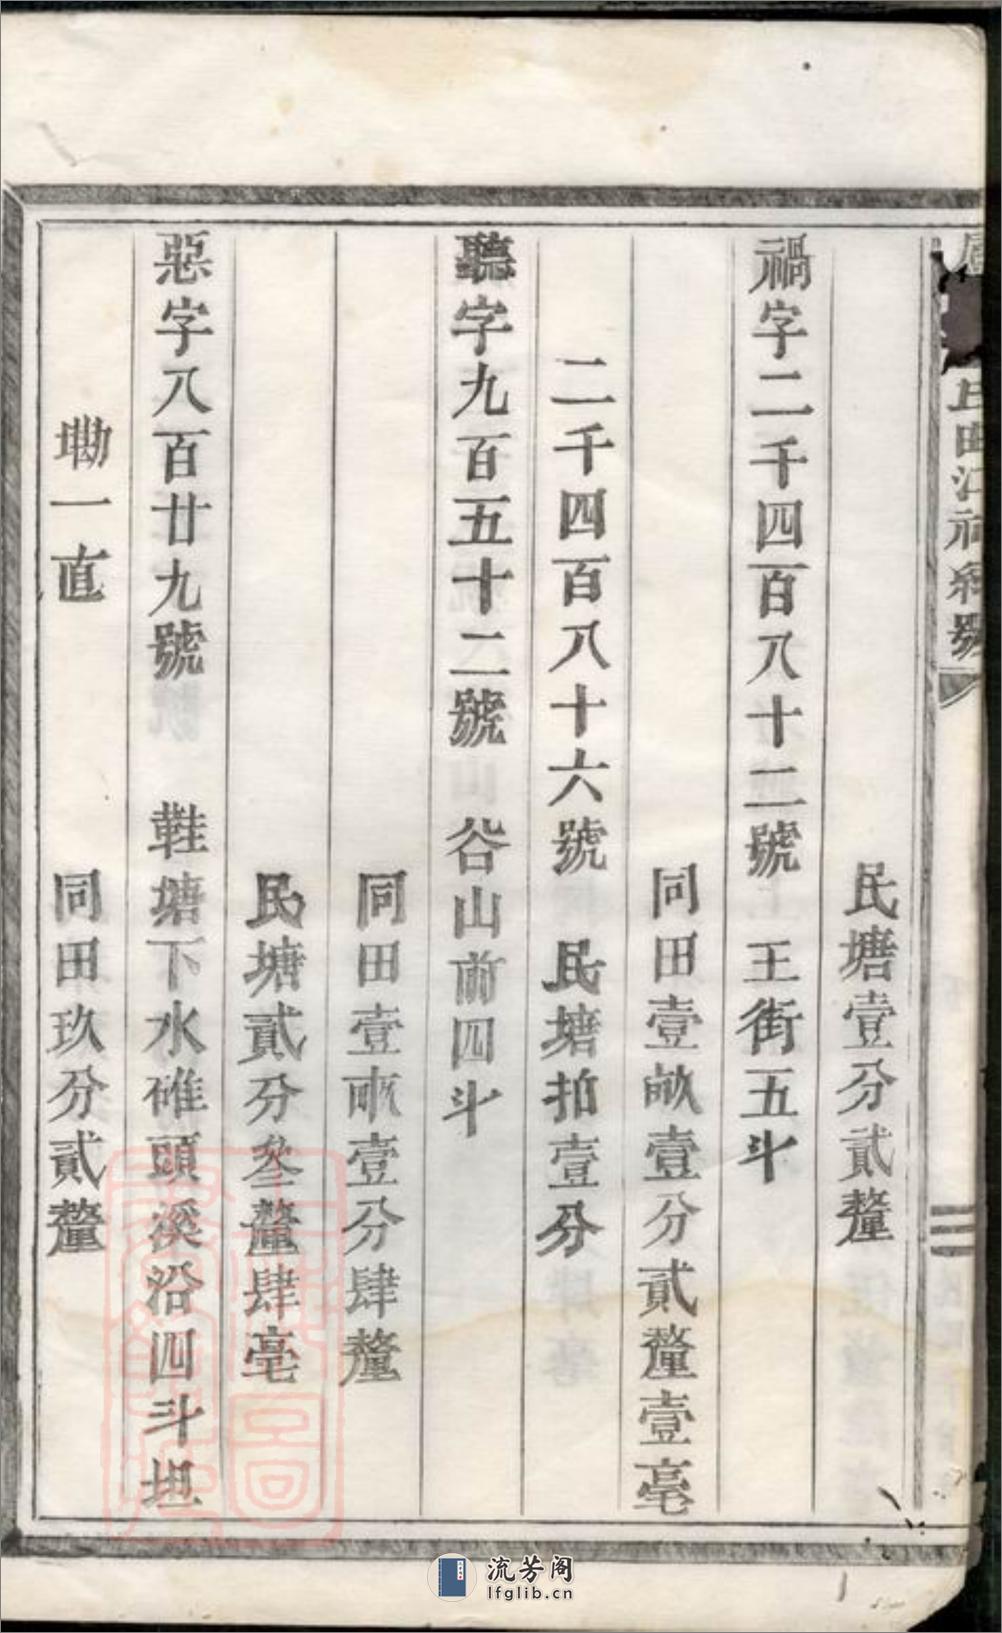 民塘壹分貳釐
禍字二千四百八十二號　王街五斗
同田壹畝壹分貳釐壹毫
二千四百八十六號　民塘拍壹分
聽字九百五十二號　谷山前四斗
同田壹畝壹分肆釐
民塘貳分叄釐肆毫
惡字八百廿九號　鞋塘下水碓頭溪沿四斗坵
坳一直　同田玖分貳釐
流芳阁
lfglib.cn